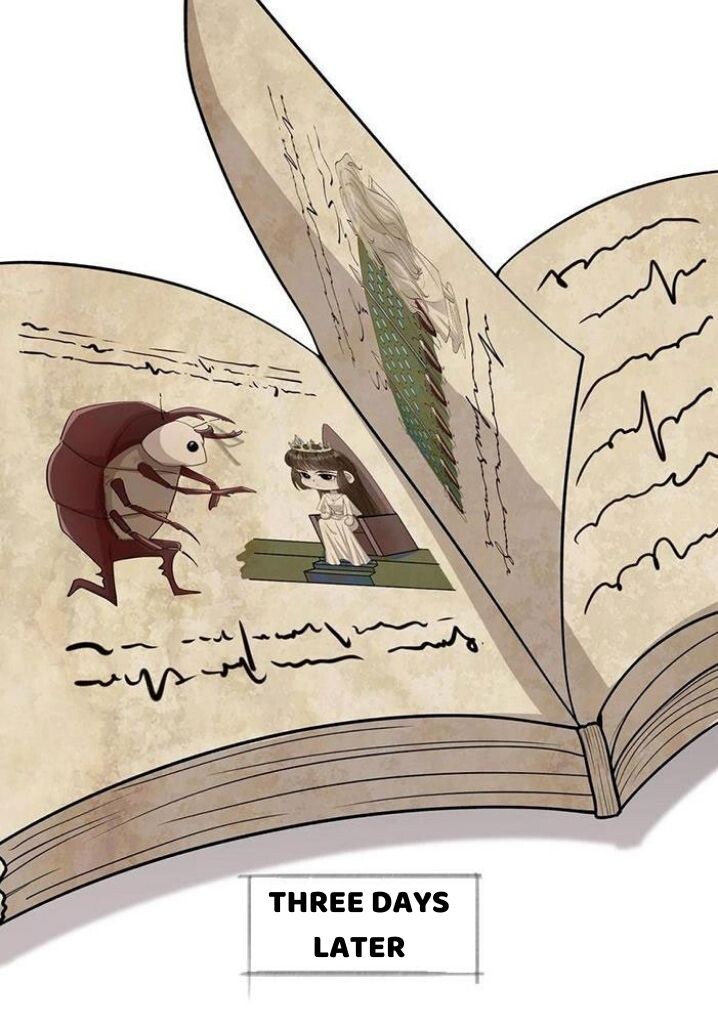 THREE DAYS
LATER